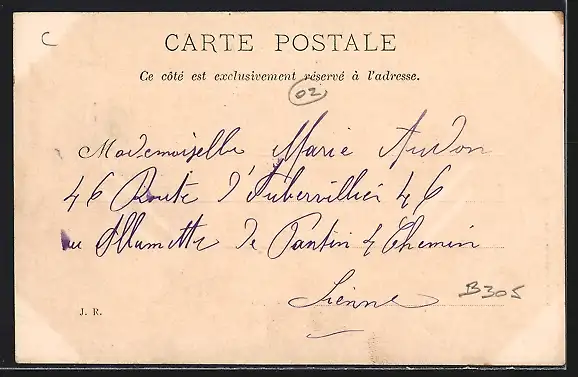 C
CARTE POSTALE
Ce côté est exclusivement réservé à l'adresse.
02
Mademoiselle Marie Audon
46 Route d'Aubervillier 46
de Pantin 4 Chemin
Sienne
B305
J. R.